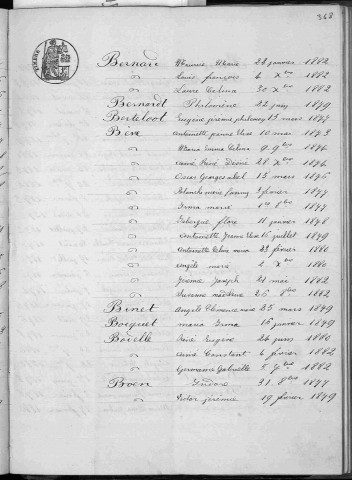 368
Bernard Marie 24 janvier 1882
" Louis françois 6 Xbre 1882
" Laure Celina 30 Xbre 1882
Bernardt Philomène 22 juin 1879
Berteloot Eugène jérémie philemon 13 mars 1877
Bève Antoinette jeanne Elise 10 mars 1873
" Maria Emma Celina 9 9bre 1874
" René Désiré 28 Xbre 1874
" Oscar Georges abel 13 mars 1876
" Blanche marie fanny 3 février 1877
" Irma marie 1er 8bre 1877
" flore 11 janvier 1878
" Antoinette Jeanne Elise 15 juillet 1879
" Antoinette 23 février 1880
" Angèle marie 2 Xbre 1880
" Jérémie Joseph 21 mai 1882
" 26 8bre 1882
Binet Angèle Clémence 25 mars 1879
Bocquet maria Irma 16 janvier 1879
Boielle Eugène 24 juin 1880
" Constant 6 février 1882
" Germaine Gabrielle 5 7bre 1882
Boen Isidore 31 8bre 1877
" Victor jérémie 19 février 1879